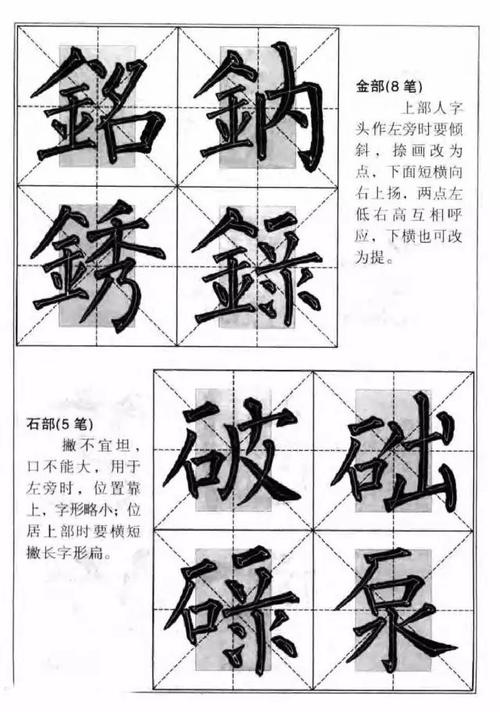 銘 鈉
銹 録
金部(8笔)
上部人字
头作左旁时要倾
斜，捺画改为
点，下面短横向
右上扬，两点左
低右高互相呼
应，下横也可改
为提。
石部(5笔)
撇不宜坦，
口不能大，用于
左旁时，位置靠
上，字形略小；位
居上部时要横短
撇长字形扁。
破 础
碌 泵